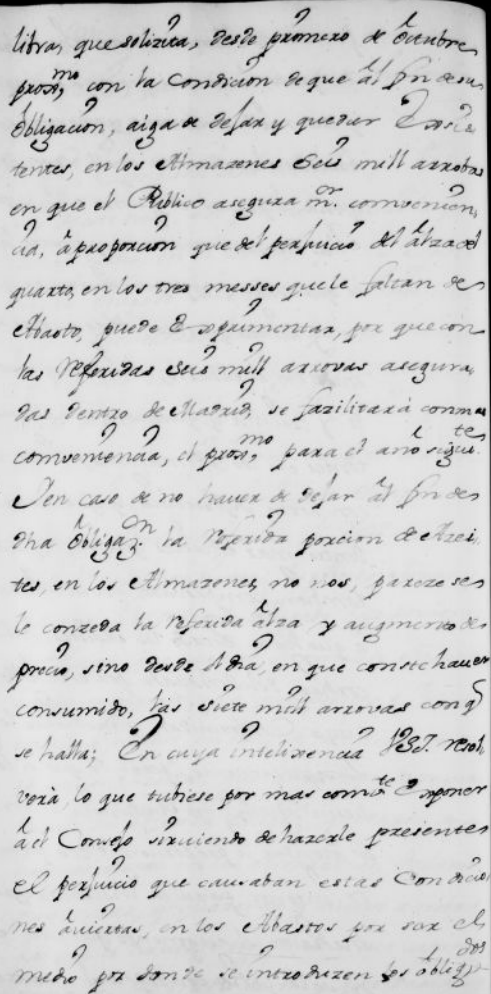 libra, que solizita, desde primero de Octubre
proxmo, con la Condicion de que al fin de su
obligacion, aiga de dejar y quedar Exsis
tentes, en los Almazenes Seis mill arrobas
en que el Publico asegura mr. convenien
cia, a proporcion que del perjuicio del alza del
quarto, en los tres messes que le faltan de
Abasto, puede Experimentar, por que con
las referidas Seis mill arrovas asegura
das dentro de Madrid, se fazilitará con mas
conveniencia, el proxmo, para el año siguite
Y en caso de no haver de dejar al fin de
dha obligazon. la referida porcion de Azei
tes, en los Almazenes, no nos, pareze se
le conzeda la referida alza y augmento de
precio, sino desde el dia, en que conste haver
consumido, las siete mill arrovas con q
se halla; En cuya intelixencia VSJ. resol
verá, lo que tubiese por mas combte Exponer
a el Consejo sirviendo de hazerle presente
el perjuicio que causaban estas Condicio
nes aviertas, en los Abastos por ser el
medio por donde se introduzen los obligados